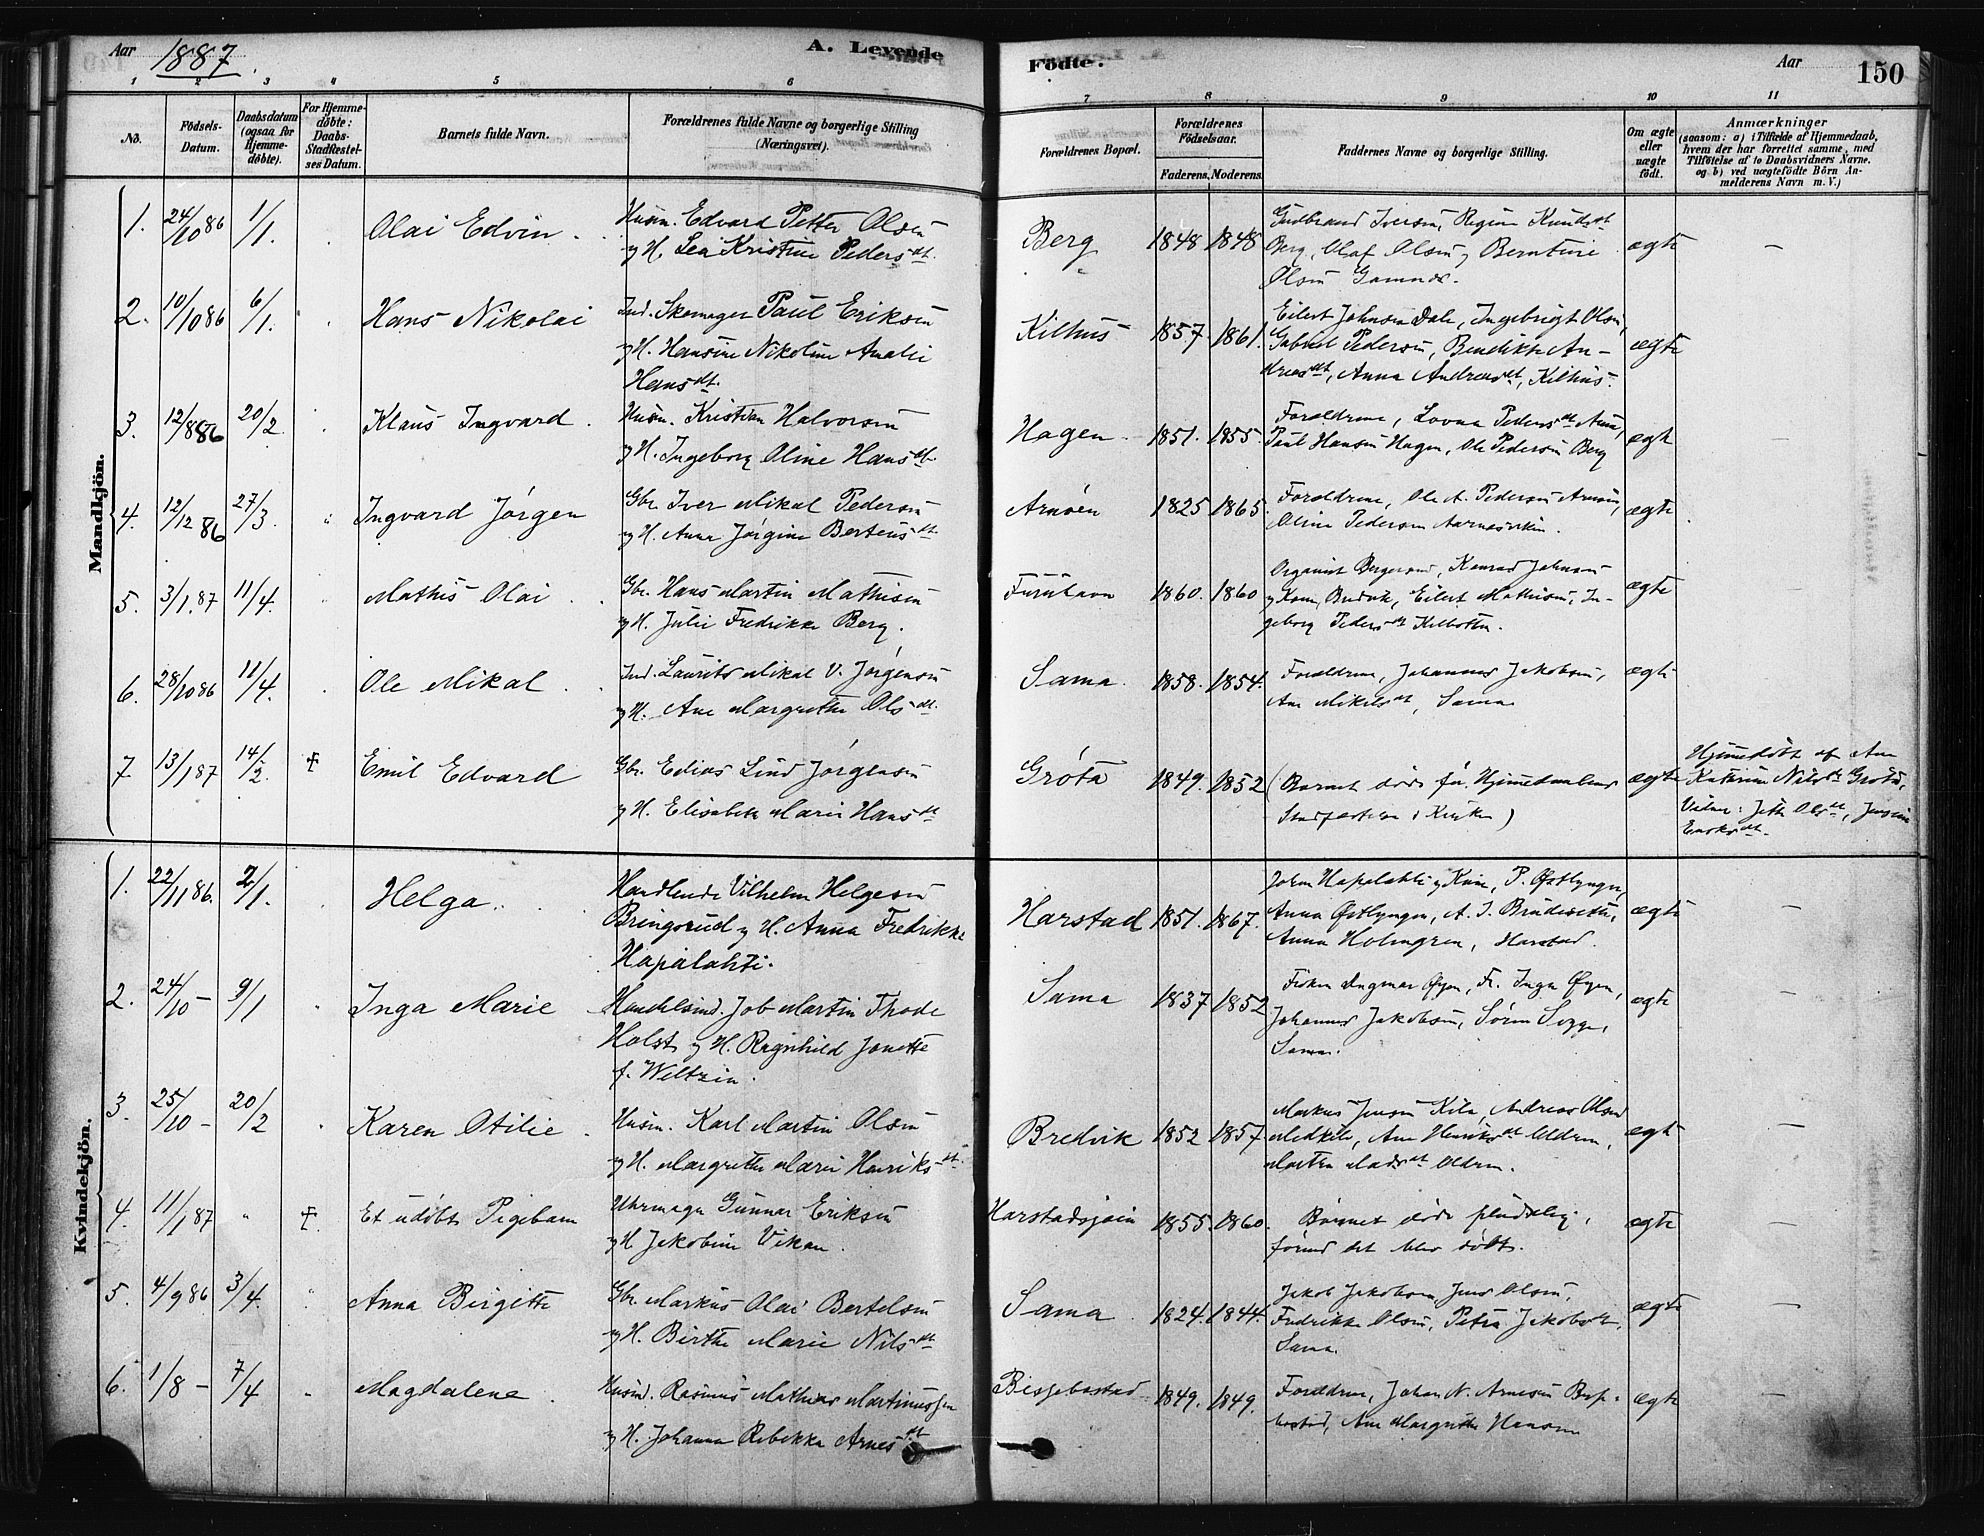 Aar 1887. A. Levende Födte. Aar 150
1 2 3 4 5 6 7 8 9 10 11
No. Födsels-Datum. Daabsdatum (ogsaa for Hjemmedøbte). For Hjemmedøbte: Daabs-Stadfæstelses Datum. Barnets fulde Navn. Forældrenes fulde Navne og borgerlige Stilling (Næringsvei). Forældrenes Bopæl. Forældrenes Födselsaar. Faderens. Moderens. Faddernes Navne og borgerlige Stilling. Om ægte eller uægte født. Anmærkninger (saasom: a) i Tilfælde af Hjemmedaab, hvem der har forrettet samme, med Tilföielse af to Daabsvidners Navne, og b) ved uægtefödte Börn Anmelderens Navn m. V.)
Mandkjön.
1. 24/10 86 1/1. Olai Edvin. Husm. Edvard Petter Olsen
og H. Lea Kristine Pedersdt. Berg 1848 1848 Gudbrand Iversen, Regine Knudsdt
Berg, Olaf Olsen og Berntine
Olsen Gamnes. ægte –
2. 10/10 86 6/1. Hans Nikolai Ind. Skomager Paul Eriksen
og H. Hansine Nikoline Amalie
Hansdt. Kilhus 1857. 1861. Eilert Johnsen Dale, Ingebrigt Olsen,
Gabriel Pedersen, Bendikte An-
dreasdt, Anna Andreasdt, Kilhus. ægte
3. 12/8 86 20/2. Klaus Ingvard. Husm. Kristian Halvorsen
og H. Ingeborg Oline Hansdt. Hagen. 1851. 1855. Forældrene, Lovna Pedersdt
Paul Hansen Hagen, Ole Pedersen Berg ægte –
4. 12/12 86 27/3. Ingvard Jørgen Gbr. Iver Mikal Pedersen
og H. Anna Jørgine Berteusdt. Arnøen 1825 1865. Forældrene, Ole A. Pedersen
Oline Pedersen ægte
5. 3/1. 87 11/4. Mathis Olai. Gbr. Hans Martin Mathisen
og H. Julie Fredrikke Berg. Furuhavn 1860. 1860 Organist Bergersend, Konrad Johnsen
og Kone, Eilert Mathisen, In-
geborg Pedersdt ægte –
6. 28/10 86 11/4. Ole Mikal. Ind. Laurits Mikal V. Jørgensen
og H. Ane Margrethe Olsdt. Sama. 1858. 1854. Forældrene, Johannes Jakobsen,
Ane Mikelsdt, Sama ægte
7 13/1 87 14/2. † Emil Edvard Gbr. Edias Lind Jørgensen
og H. Elisabeth Marie Hansdt Grøtø 1849. 1852 (Barnet døde før Hjemmedaabens
Stadfæstelse i Kirken) ægte Hjemmedøbt af Ane
Kathrine Nilsdt Grøtø,
Vidner: Jette Olsdt,
Eriksdt.
Kvindekjön.
1. 22/11 86. 2/1. Helga. Handlende Vilhelm Helgesen
Bringsrud og H. Anna Fredrikke
Hapalahti. Harstad 1851. 1867. John Hapalahti og Kone, P. Østlyngen,
Anna Østlyngen, A. J. Brudeseth,
Anna Holmgren, Harstad. ægte –
2. 24/10 – 9/1 Inga Marie Handelsind. Job Martin Thode
Holst og H. Ragnhild Jonette
f. Weltzin. Sama 1837 1852 Frøken Dagmar Øyen, Fr. Inga Øyen,
Johannes Jakobsen, Søren
Sama. ægte –
3. 25/10 – 20/2 Karen Otilie. Husm. Karl Martin Olsen
og H. Margrethe Marie Henriksdt. Bredvik 1852 1857 Markus Jensen Kila, Andreas Olsen
Medkila, Ane Henriksdt Aldren,
Martha Madsdt Aldren. ægte –
4. 11/1 87 " †. Et udøbt Pigebarn Uhrmager Gunnar Eriksen
og H. Jakobine Vikan. Harstadsjøen 1855. 1860. Barnet døde pludselig,
førend det blev døbt. ægte –
5. 4/9 86 3/4. Anna Birgitte Gbr. Markus Olai Bertelsen
og H. Birthe Marie Nilsdt Sama. 1824. 1844. Jakob Jakobsen, Jens Olsen,
Fredrikke Olsen, Petra Jakobsdt,
Sama. ægte –
6. 1/8 – 7/4 Magdalene. Husmd. Rasmus Mathias Martinussen
og H. Johanna Rebekka Arnesdt Bessebostad 1849. 1849. Forældrene, Johan N. Arnesen Besse-
bostad, Ane Margrethe Hansen ægte –